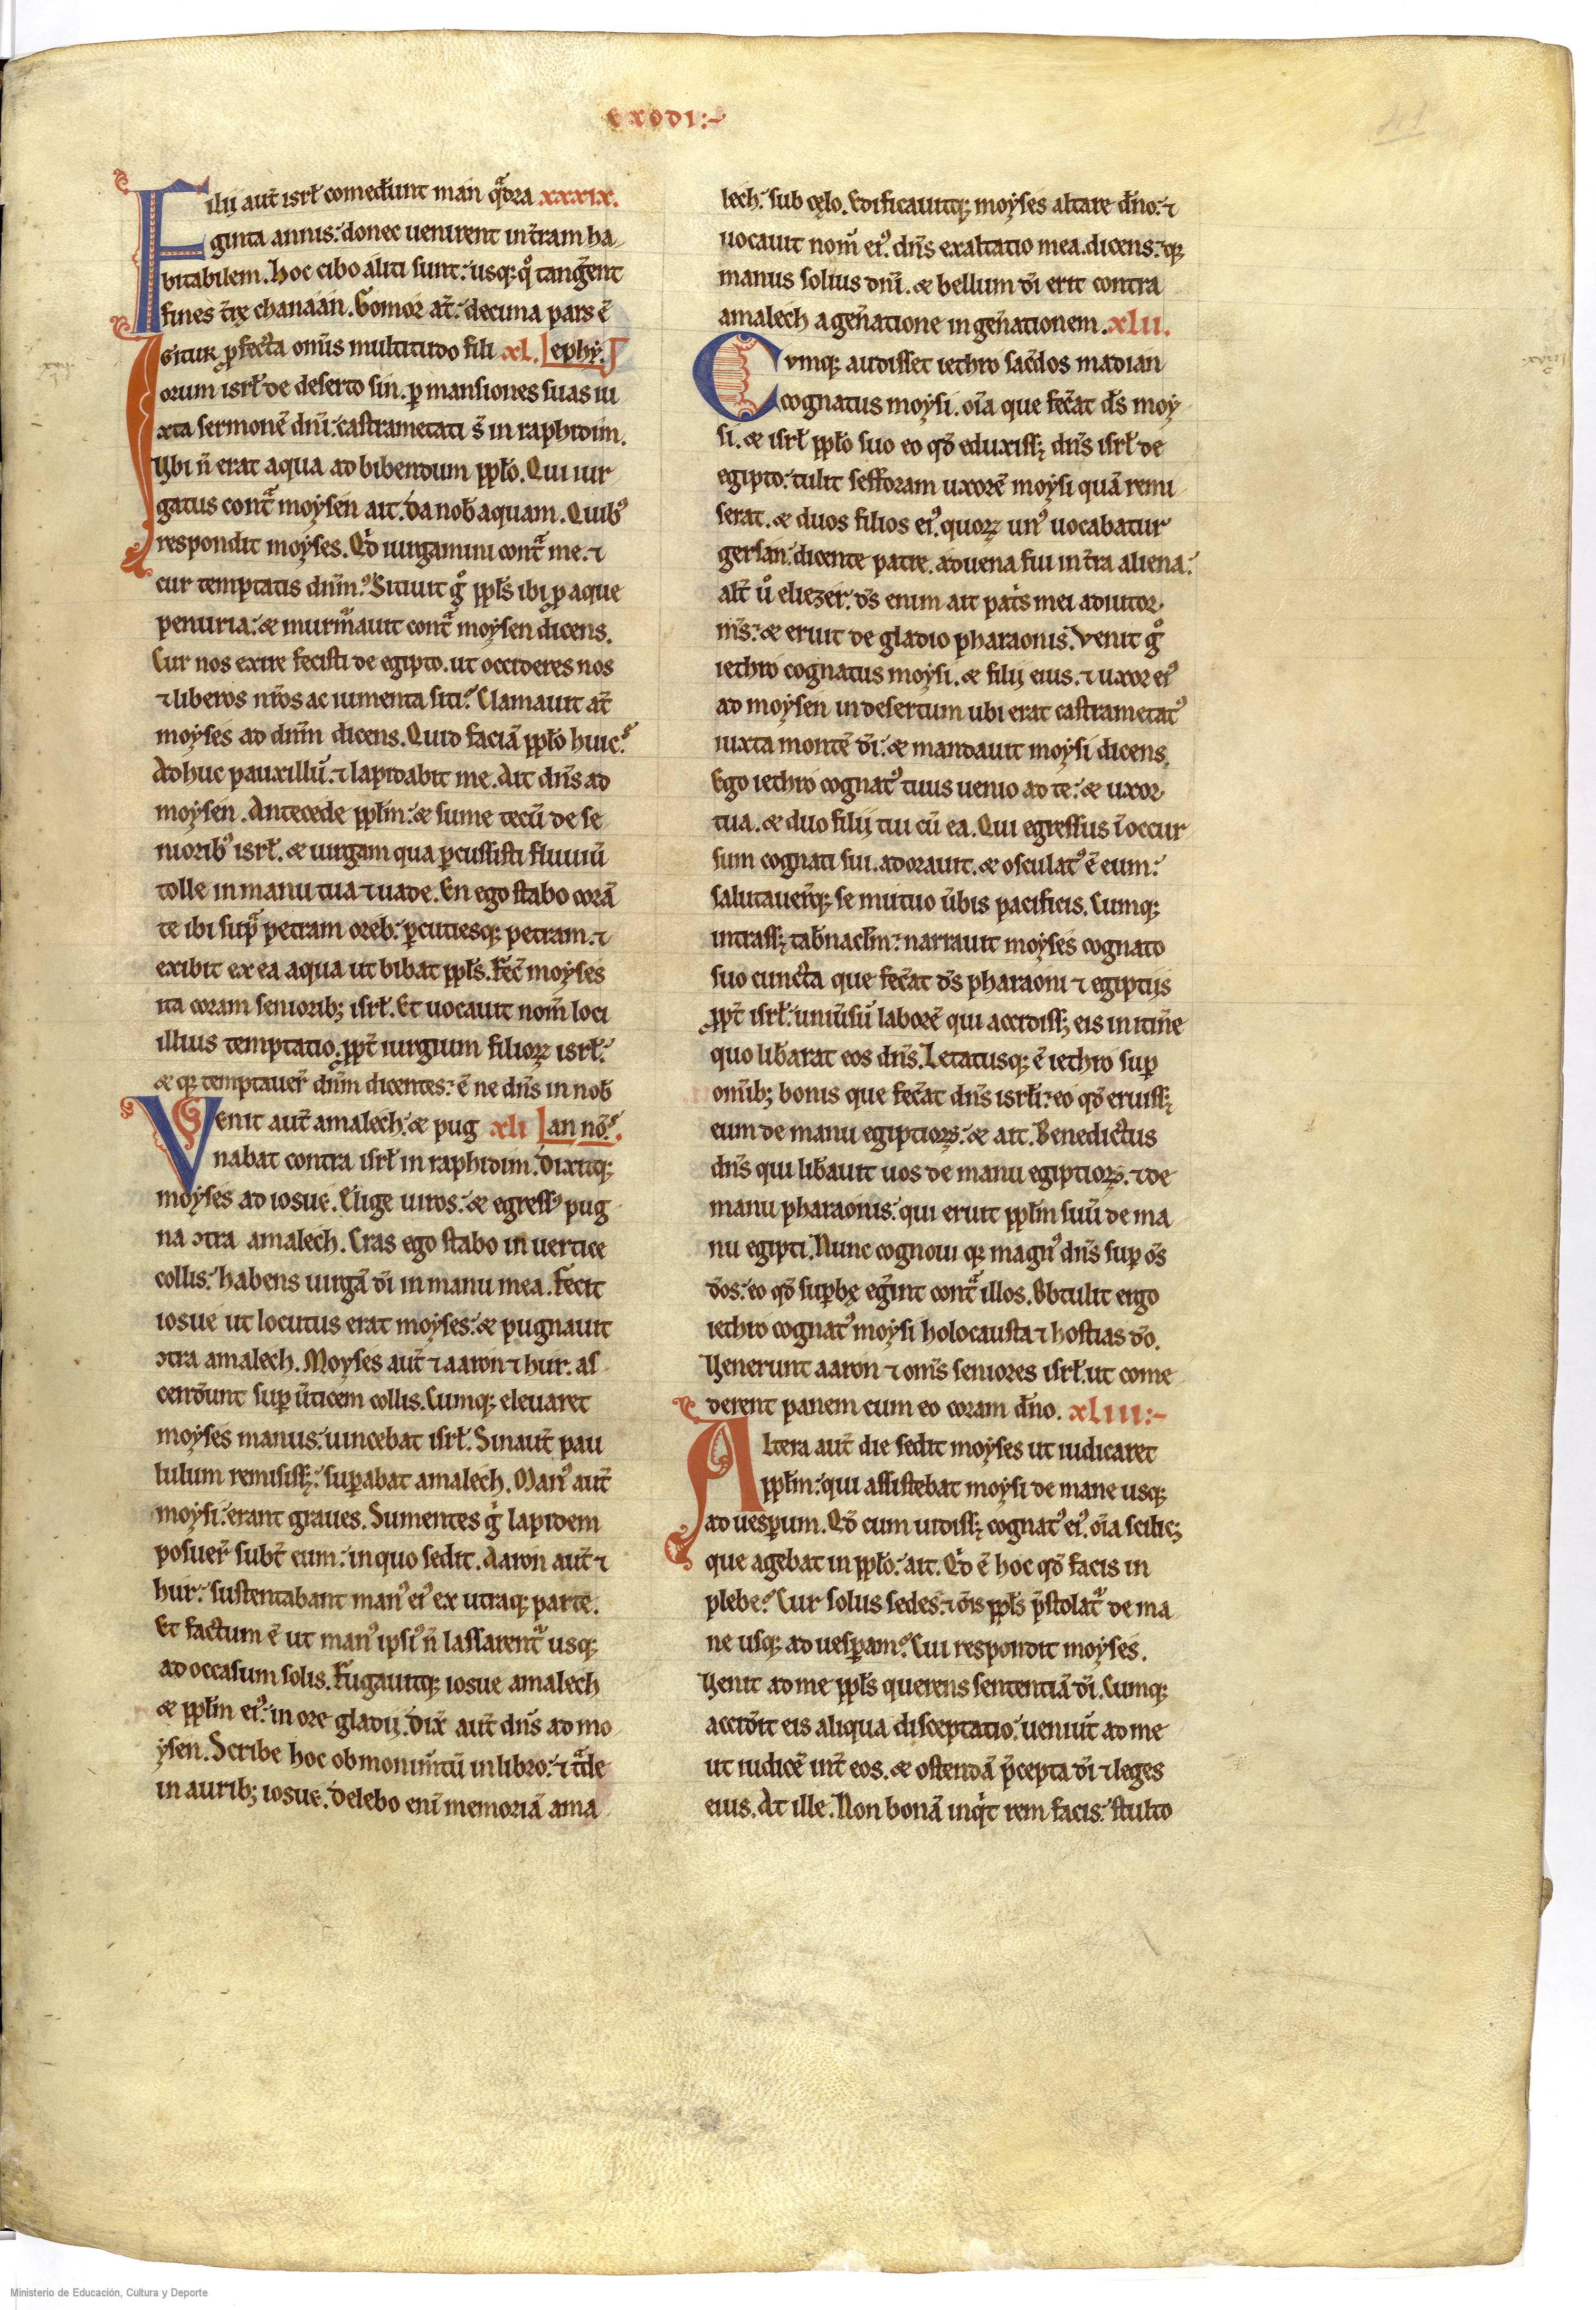 exodi:~
Filij aut̄ isrł comedunt man qᷓdra xxxix.
ginta annis: donec uenirent in t̄ram ha
bitabilem. Hoc cibo aliti sunt: usq; qͦ tang̃ent
fines t̄rę chanaan. Gomor at̄: decima pars ē
Igitur ꝓfecta om̄is multitudo fili xl. ephy.
orum isrł de deserto sin. ꝑ mansiones suas iu
xta sermonē dn̄i: castrametati s̄ in raphidim.
Ubi n̄ erat aqua ad bibendum ppło. Qui iur
gatus contᷓ moysen ait. Da nob̄ aquam. Quibꝰ
respondit moyses. Qͥd iurgamini contᷓ me. ⁊
cur temptatis dn̄m? Sitiuit gͦ ppłs ibi ꝓ aque
penuria: & murm̄auit contᷓ moysen dicens.
Cur nos exire fecisti de egipto. ut occideres nos
⁊ liberos nr̄os ac iumenta siti? Clamauit at̄
moyses ad dn̄m dicens. Quid faciā ppło huic?
Adhuc pauxillū. ⁊ lapidabit me. Ait dn̄s ad
moysen. Antecede ppłm: & sume tecū de se
nioribꝰ isrł. & uirgam qua ꝑcussisti fluuiū
tolle in manu tua ⁊ uade. En ego stabo corā
te ibi supᷓ petram oreb: ꝑcutiesq; petram. ⁊
exibit ex ea aqua ut bibat ppłs. Fec̄ moyses
ita coram seniorib; isrł. Et uocauit nom̄ loci
illius temptatio. ꝓpt̄ iurgium filioꝝ isrł:
& qꝫ temptauer̄ dn̄m dicentes: ē ne dn̄s in nob̄
Venit aut̄ amalech: & pug xli an nō?.
nabat contra isrł in raphidim. Dixitq;
moyses ad iosue. Elige uiros: & egressꝰ pug
na ꝯtra amalech. Cras ego stabo in uertice
collis: habens uirgā dī in manu mea. Fecit
iosue ut locutus erat moyses: & pugnauit
ꝯtra amalech. Moyses aut̄ ⁊ aaron ⁊ hur. as
cend̄unt suꝑ ūticem collis. Cumq; eleuaret
moyses manus: uincebat isrł. Sin aut̄ pau
lulum remisisꝫ: suꝑabat amalech. Manꝰ aut̄
moysi: erant graues. Sumentes gͥ lapidem
posuer̄ subt̄ eum: in quo sedit. Aaron aut̄ ⁊
hur: sustentabant manꝰ eiꝰ ex utraq; parte.
Et factum ē ut manꝰ ipsiꝰ n̄ lassarentᷣ usq;
ad occasum solis. Fugauitq; iosue amalech
& ppłm eiꝰ: in ore gladii. Dix̄ aut̄ dn̄s ad mo
ysen. Scribe hoc ob monim̄tū in libro: ⁊ tᷓde
in aurib; iosue. Delebo enī memoriā ama
lech: sub cęlo. Edificauitq; moyses altare dn̄o: ⁊
uocauit nom̄ eiꝰ. dn̄s exaltatio mea. dicens: qꝫ
manus solius dn̄i. & bellum dī erit contra
amalech a gen̄atione in gen̄ationem. xlii.
Cvmq; audisset iethro sac̄dos madian
cognatus moysi. oīa que fec̄at dꝰs moy
si. & isrł ppło suo eo qd̄ eduxissꝫ dn̄s isrł de
egipto: tulit sefforam uxorē moysi quā remi
serat. & duos filios eiꝰ. quoꝝ unꝰ uocabatur
gersan: dicente patre. aduena fui in t̄ra aliena:
alt̄ uͦ eliezer: d̄s enim ait patͥs mei adiutor
mꝰs: & eruit de gladio pharaonis. Venit gͦ
iethro cognatus moysi. & filij eius. ⁊ uxor eiꝰ
ad moysen in desertum ubi erat castrametatꝰ
iuxta montē dī: & mandauit moysi dicens.
Ego iethro cognatꝰ tuus uenio ad te: & uxor
tua. & duo filij tui cū ea. Qui egressus ī occur
sum cognati sui. adorauit. & osculatꝰ ē eum:
salutauer̄q; se mutuo ūbis pacificis. Cumq;
intrassꝫ tab̄nacłm: narrauit moyses cognato
suo cuncta que fec̄at d̄s pharaoni ⁊ egiptijs
ꝓpt̄ isrł: uniūsū laborē qui accidissꝫ eis in itin̄e
quo lib̄arat eos dn̄s. Letatusq; ē iethro suꝑ
omīb; bonis que fec̄at dn̄s isrłi: eo qd̄ eruissꝫ
eum de manu egiptioꝝ: & ait. Benedictus
dn̄s qui lib̄auit uos de manu egiptioꝝ. ⁊ de
manu pharaonis: qui eruit ppłm suū de ma
nu egipti. Nunc cognoui qꝫ magnꝰ dn̄s suꝑ oēs
dōs: eo qd̄ suꝑbę eg̃int contᷓ illos. Obtulit ergo
iethro cognatꝰ moysi holocausta ⁊ hostias dō.
Venerunt aaron ⁊ om̄s seniores isrł. ut come
derent panem cum eo coram dn̄o. xliii:~
Altera aut̄ die sedit moyses ut iudicaret
ppłm: qui assistebat moysi de mane usq;
ad uesꝑum. Qd̄ cum uidissꝫ cognatꝰ eiꝰ. oīa scilicꝫ
que agebat in ppło: ait. Qͥd ē hoc qd̄ facis in
plebe? Cur solus sedes: ⁊ oīs ppłs p̄stolatᷣ de ma
ne usq; ad uesꝑam? Cui respondit moyses.
Venit ad me ppłs querens sententiā dī. Cumq;
accid̄it eis aliqua disceptatio: ueniūt ad me
ut iudicē int̄ eos. & ostendā p̄cepta dī ⁊ leges
eius. At ille. Non bonā inqͥt rem facis: stulto
Ministerio de Educación, Cultura y Deporte